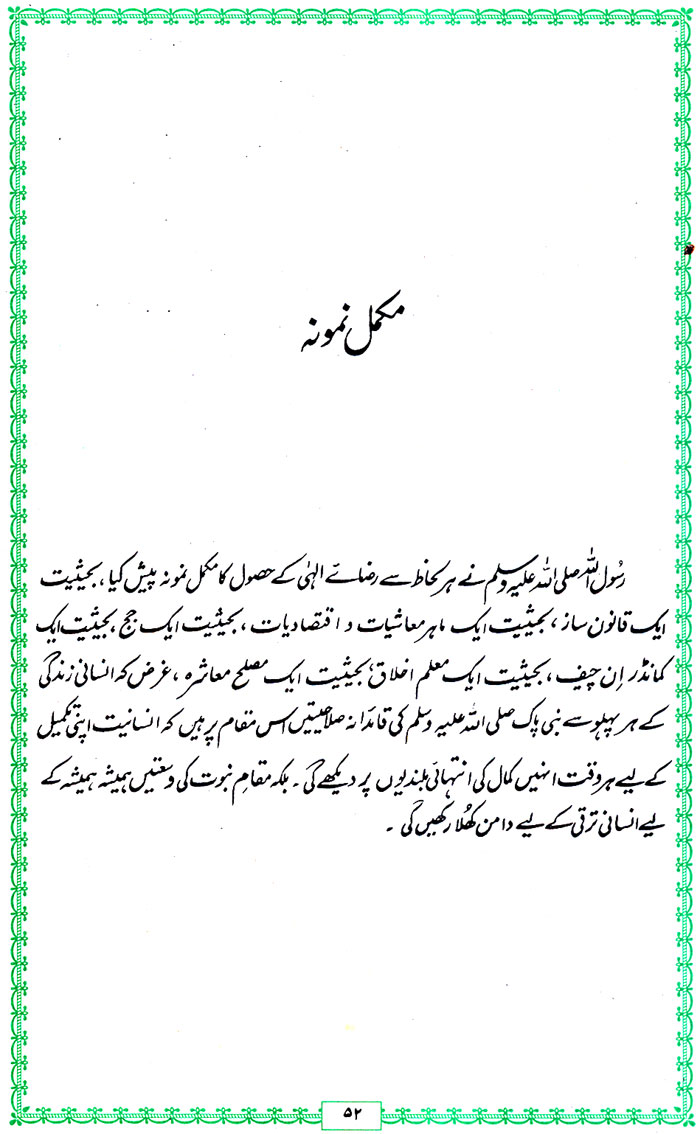 مکمل نمونہ
رسُول اللہ صلی اللہ علیہ وسلم نے ہر لحاظ سے رضائے الہٰی کے حصول کا مکمل نمونہ پیش کیا، بحیثیت
ایک قانون ساز، بحیثیت ایک ماہر معاشیات و اقتصادیات، بحیثیت ایک جج، بحیثیت ایک
کمانڈر اِن چیف، بحیثیت ایک معلم اخلاق، بحیثیت ایک مصلح معاشرہ، غرض کہ انسانی زندگی
کے ہر پہلو سے نبی پاک صلی اللہ علیہ وسلم کی قائدانہ صلاحیتیں اس مقام پر ہیں کہ انسانیت اپنی تکمیل
کے لیے ہر وقت انہیں کمال کی انتہائی بلندیوں پر دیکھے گی۔ بلکہ مقامِ نبوت کی وسعتیں ہمیشہ ہمیشہ کے
لیے انسانی ترقی کے لیے دامن کھُلا رکھیں گی۔
۵۲